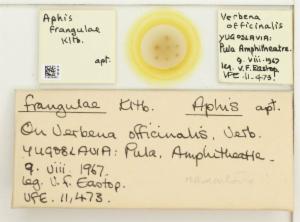 Aphis
frangulae
Kltb.
apt.
Verbena
officinalis
YUGOSLAVIA:
Pula Amphitheatre.
9. viii. 1967
leg. V.F. Eastop.
VFE. 11,473.
frangulae Kltb. Aphis apt.
On Verbena officinalis, Verb.
YUGOSLAVIA: Pula, Amphitheatre.
9. viii. 1967.
leg. V.F. Eastop.
VFE. 11,473.